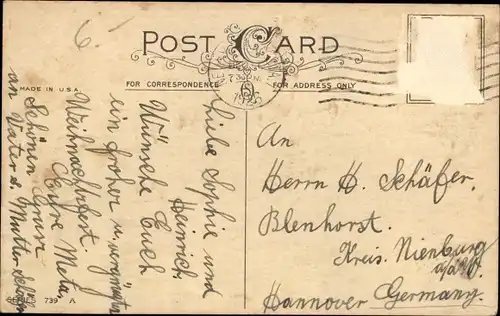 6.
POST CARD
FOR CORRESPONDENCE
FOR ADDRESS ONLY
MADE IN U.S.A.
Liebe Sophie und
Heinrich.
Wünsche Euch
ein froher u. vergnügtes
Weihnachtsfest
Eure Meta.
Schönen Gruss
an Vater u. Mutter
An
Herrn H. Schäfer.
Blenhorst.
Kreis. Nienburg
a/d
Hannover Germany.
SERIES 739 A